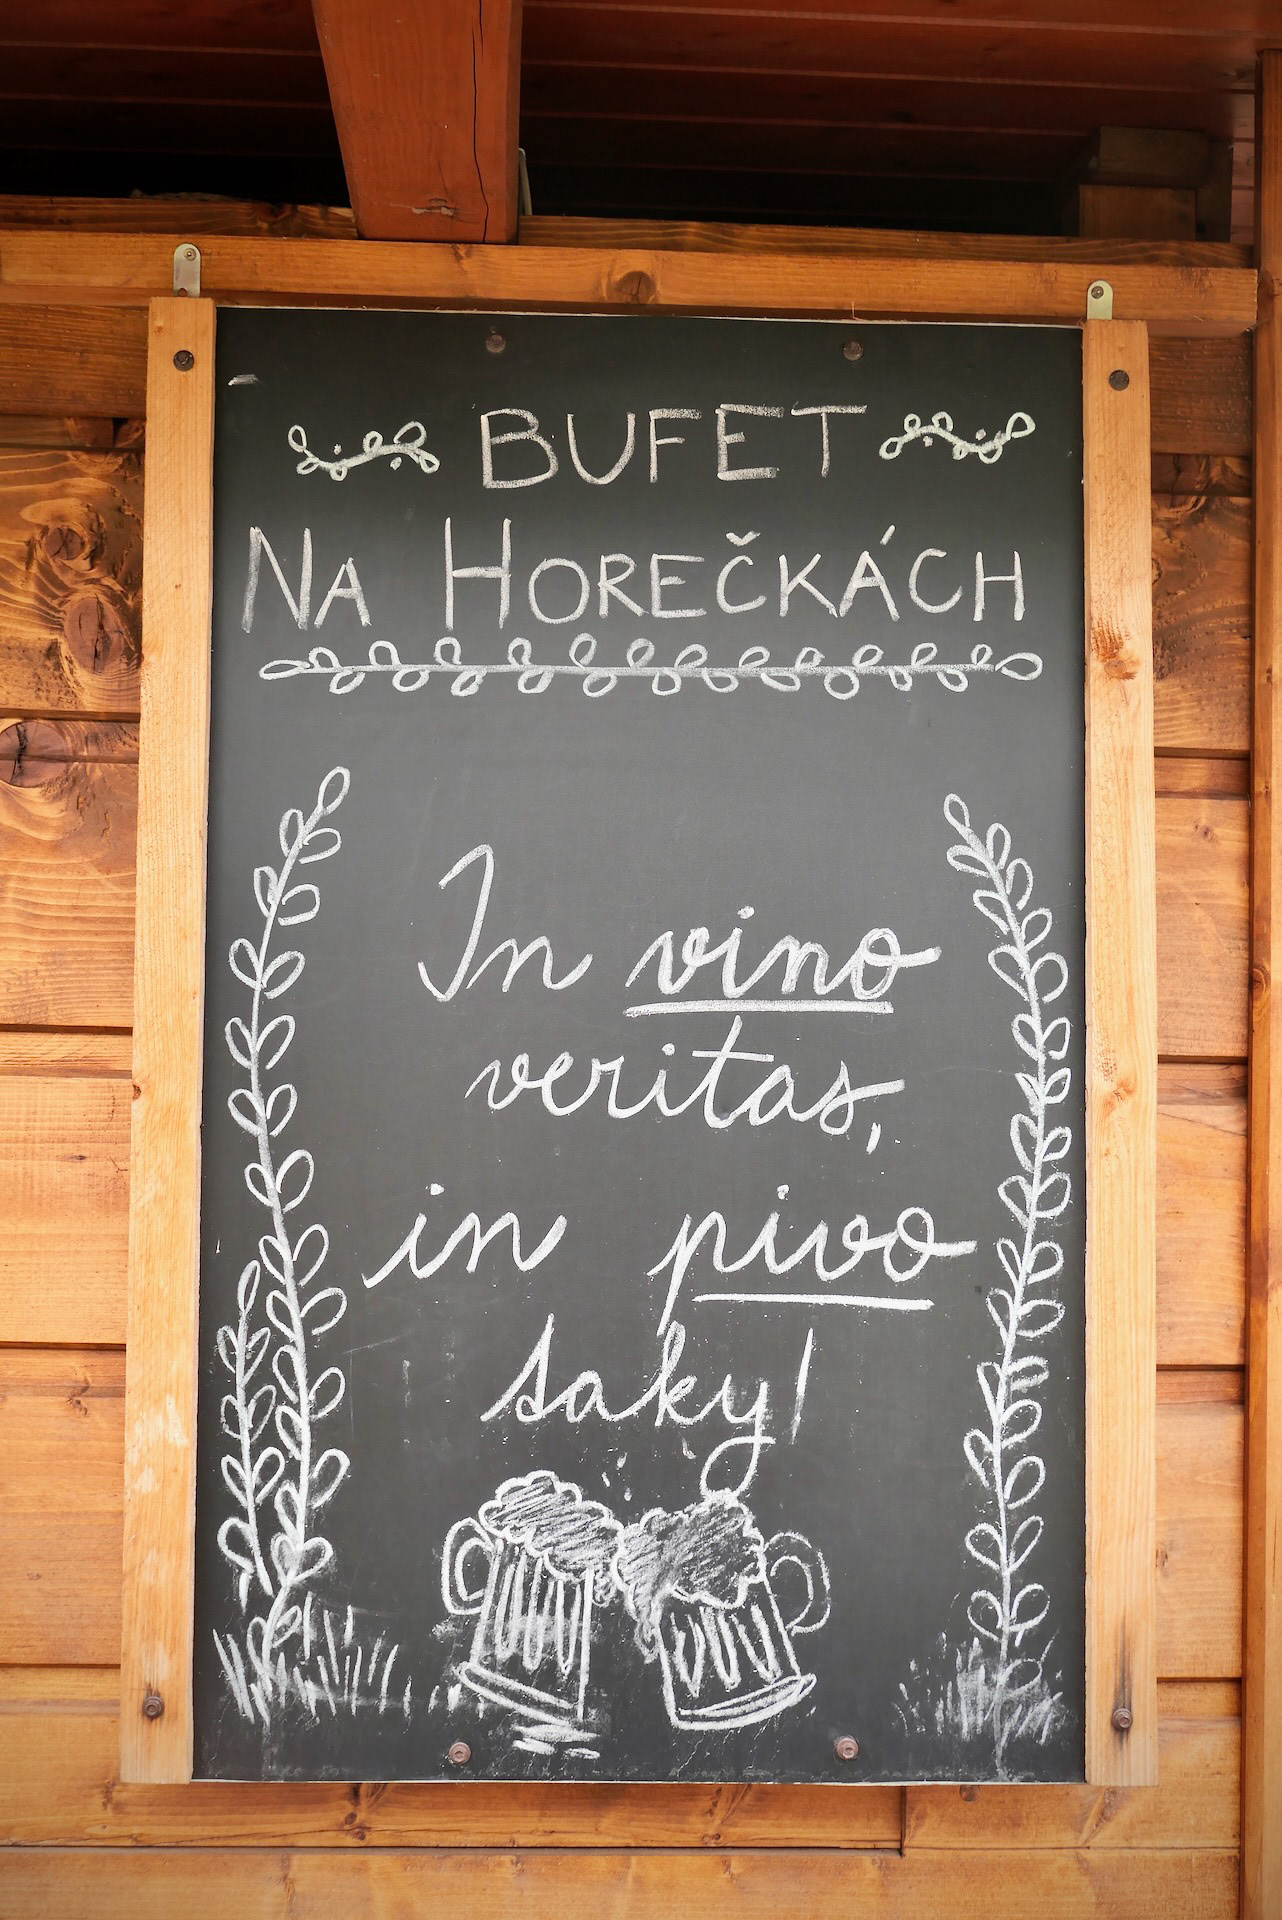 BUFET
NA HOREČKÁCH
In vino
veritas,
in pivo
taky!